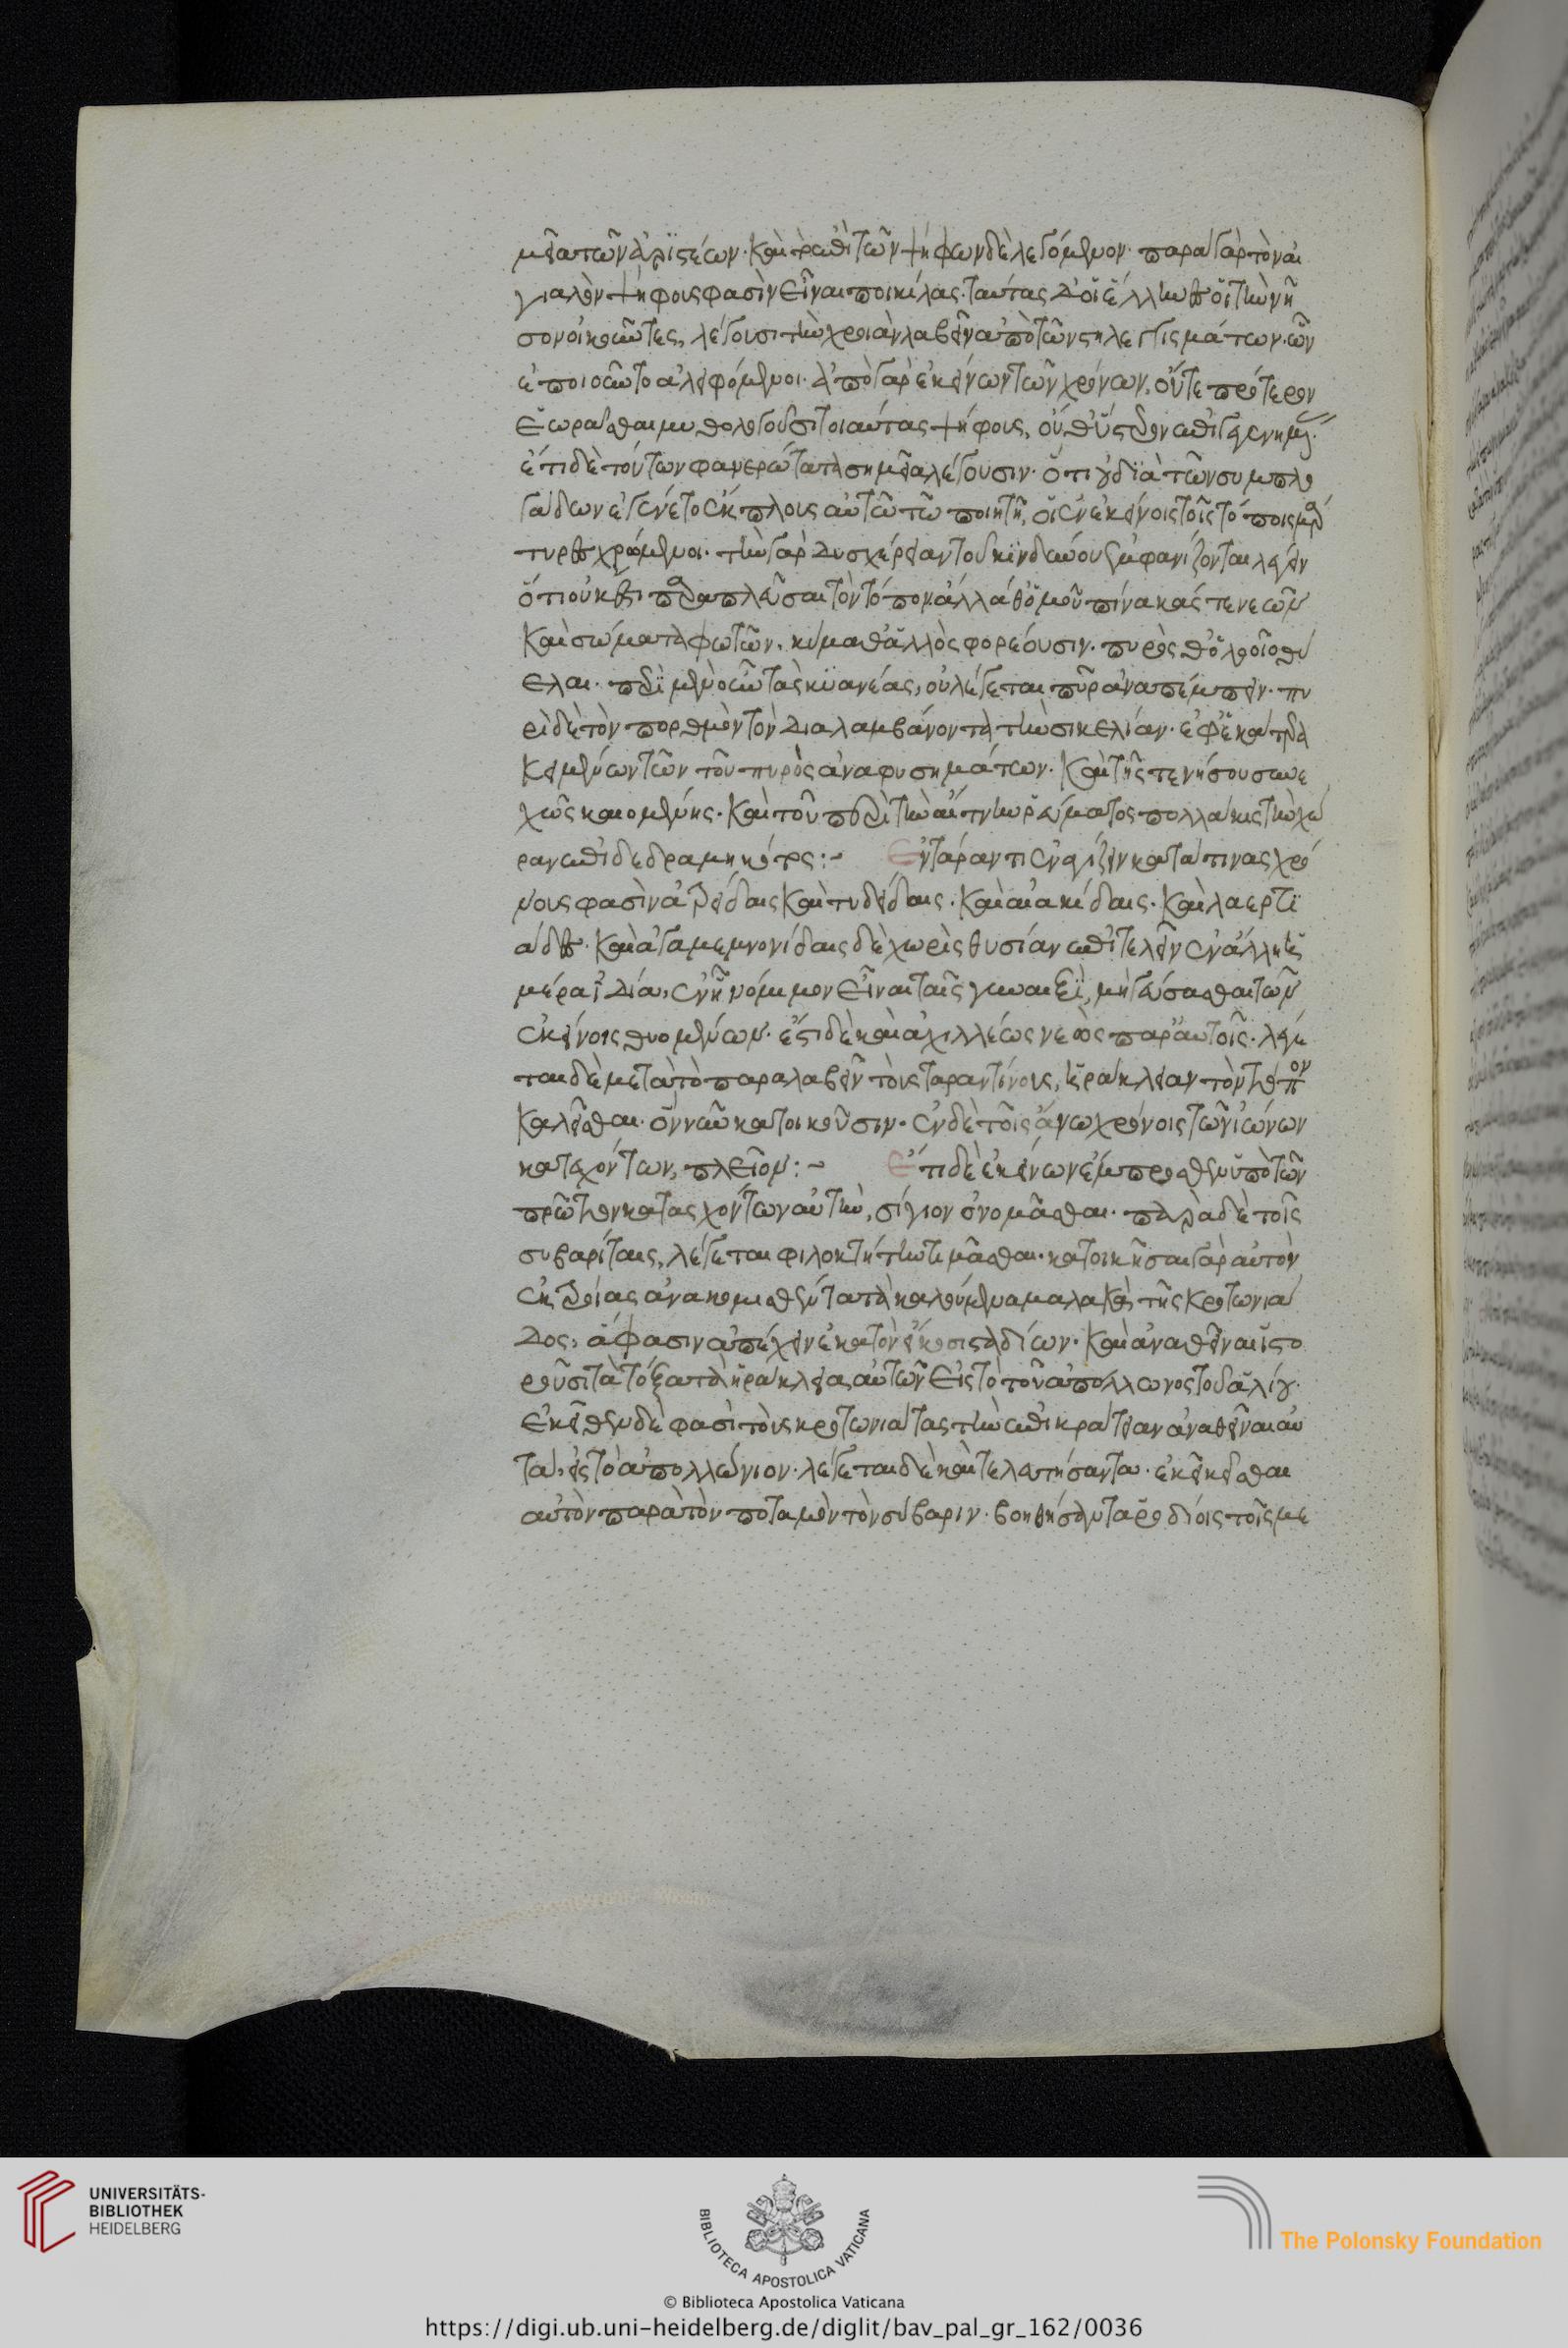 μεῖα τῶν ἀριστέων· καὶ τὸ ἐπὶ τῶν ψήφων δὲ λεγόμενον· παρὰ γὰρ τὸν αἰ
γιαλὸν ψήφους φασὶν εἶναι ποικίλας· ταύτας δ' οἱ ἕλληνες οἱ τὴν νῆ
σον οἰκοῦντες, λέγουσι τὴν χροιὰν λαβεῖν ἀπὸ τῶν στλεγγισμάτων· ὧν
ἐποιοῦντο ἀλειφόμενοι· ἀπὸ γὰρ ἐκείνων τῶν χρόνων, οὔτε πρότερον
ἑωρᾶσθαι μυθολογοῦσι τοιαύτας ψήφους, οὔθ' ὕστερον
ἔτι δὲ τούτων φανερώτατα σημεῖα λέγουσιν· ὅτι οὐ διὰ τῶν συμπλη
γάδων ἐγένετο ἔκπλους αὐτῶ τῶ ποιητῆ, οἱ ἐν ἐκείνοις τοῖς τόποις μάρ
τυρι χρώμενοι· τὴν γὰρ δυσχέρειαν τοῦ κινδύνου ἐμφανίζονται λέγειν
ὅτι οὐκ ἔστι παραπλεῦσαι τὸν τόπον ἀλλά θ' ὁμοῦ πίνακάς τε νεῶν
καὶ σώματα φωτῶν, κύμαθ' ἁλὸς φορέουσιν· πυρός θ' ὀλοοῖο θύ
ελαι· περὶ μὲν οὖν τὰς κυανέας, οὐ λέγεται πῦρ ἀναπέμπειν· πε
ρὶ δὲ τὸν πορθμὸν τὸν διαλαμβάνοντα τὴν σικελίαν· ἐφ' ἑκάτερα
κειμένων τῶν τοῦ πυρὸς ἀναφυσημάτων· καὶ τῆς τε νήσου συνε
χῶς καιομένης· καὶ τοῦ περὶ τὴν αἴτνην ῥεύματος πολλάκις τὴν χώ
ραν ἐπιδεδραμηκότος:- Ἐν τάραντι ἐναγίζειν κατά τινας χρό
νους φασὶν ἀτρείδαις καὶ τυδείδαις· καὶ αἰακίδαις· καὶ λαερτι
άδαις· καὶ ἀγαμεμνονίδαις δὲ χωρὶς θυσίαν ἐπιτελεῖν ἐν ἄλλη ἡ
μέρα ἰδία, ἐν ἧ νόμιμον εἶναι ταῖς γυναιξὶ, μὴ γεύσασθαι τῶν
ἐκείνοις θυομένων· ἔστι δὲ καὶ ἀχιλλέως νεὼς παρ' αὐτοῖς· λέγε
ται δὲ μετὰ τὸ παραλαβεῖν τοὺς ταραντίνους, ἡράκλειαν τὸν τόπον
καλεῖσθαι· ὃν νῦν κατοικοῦσιν· ἐν δὲ τοῖς ἄνω χρόνοις τῶν ἰώνων
κατεχόντων, πλεῖον:- Ἔτι δὲ ἐκείνων ἔμπροσθεν ὑπὸ τῶν
πρώτων κατασχόντων αὐτὴν, σίγιον ὀνομᾶσθαι· παρὰ δὲ τοῖς
συβαρίταις, λέγεται φιλοκτήτην τιμᾶσθαι· κατοικῆσαι γὰρ αὐτὸν
ἐκ τροίας ἀνακομισθέντα τὰ καλούμενα μαλακὰ τῆς κροτωνιά
δος, ἅ φασιν ἀπέχειν ἑκατὸν εἴκοσι σταδίων· καὶ ἀναθεῖναι ἱστο
ροῦσι τὰ τόξα τὰ ἡράκλεια αὐτῶν εἰς τὸ τοῦ ἀπόλλωνος τοῦ ἁλίου·
ἐκεῖθεν δὲ φασὶ τοὺς κροτωνιάτας τὴν ἐπικράτειαν ἀναθεῖναι αὐ
τὰ, εἰς τὸ ἀπολλώνιον· λέγεται δὲ καὶ τελευτήσαντα· ἐκεῖ κεῖσθαι
αὐτὸν παρὰ τὸν ποταμὸν τὸν σύβαριν· βοηθήσαντα ῥοδίοις τοῖς με
UNIVERSITÄTS-
BIBLIOTHEK
HEIDELBERG
BIBLIOTECA APOSTOLICA VATICANA
The Polonsky Foundation
© Biblioteca Apostolica Vaticana
https://digi.ub.uni-heidelberg.de/diglit/bav_pal_gr_162/0036